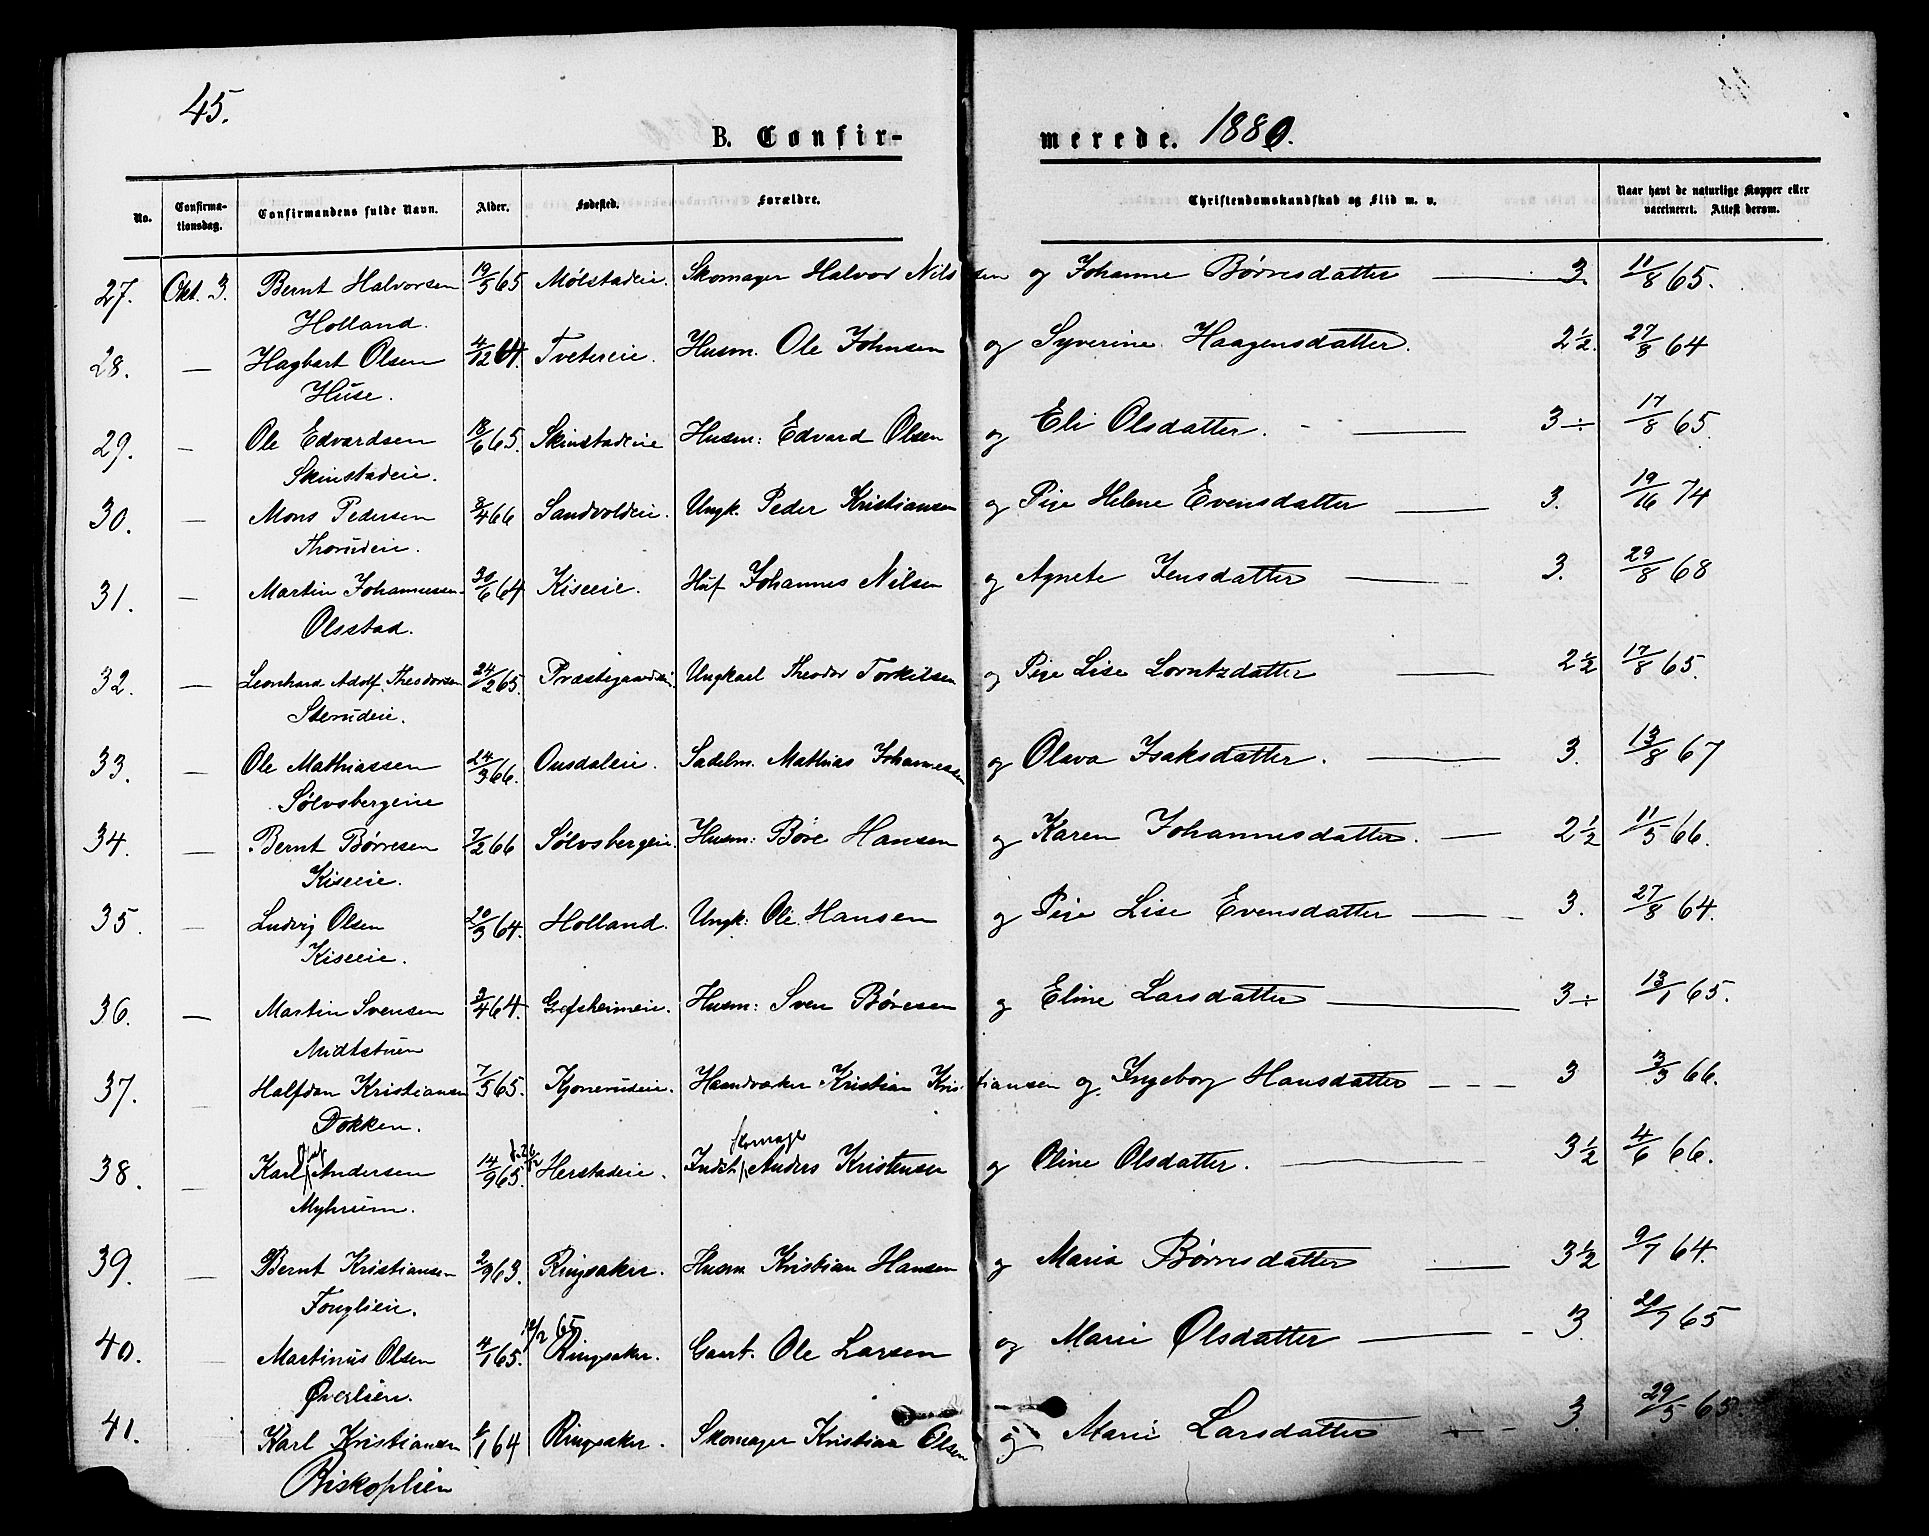 45.
B. Confir-merede. 1880.
No. Confirmationsdag. Confirmandens fulde Navn. Alder. Fødested. Forældre. Christendomskundskab og Flid m. v. Naar havt de naturlige Kopper eller vaccineret. Attest derom.
27. Okt. 3. Bernt Halvorsen 19/5 65 Mølstadeie. Skomager Halvor Nilssen og Johanne Børresdatter — 3. 11/8 65.
Holland.
28. — Hagbart Olsen 4/12 64. Tvetereie. Husm. Ole Johnsen og Syverine Haagensdatter. 2½. 27/8 64
Huse.
29. — Ole Edvardsen 18/6 65. Skinstadeie Husm: Edvard Olsen og Eli Olsdatter. — 3÷ 17/8 65.
Skinstadeie.
30. — Mons Pedersen 8/4 66 Sandvoldeie. Ungk. Peder Kristiansen og Pige Helene Evensdatter — 3. 19/16 74
Thorudeie.
31. — Martin Johannessen 30/6 64 Kiseeie. Huf Johannes Nilsen og Agnete Jensdatter — 3. 29/8 68
Olsstad.
32. — Leonhard Adolf Theodorsen 24/2 65. Præstegaardseie Ungkarl Theodor Torkilsen og Pige Lise Lorntzdatter — 2½ 17/8 65.
Sterudeie.
33. — Ole Mathiassen 24/3 66. Ousdaleie. Sadelm. Mathias Johannessen og Olava Isaksdatter. — 3. 13/8 67
Sølvsbergeie
34. — Bernt Børresen 7/2 66 Sølvsbergeie. Husm: Børe Hansen og Karen Johannesdatter. — 2½ 11/5 66.
Kiseeie.
35. — Ludvig Olsen 20/3 64. Holland. Ungk: Ole Hansen og Pige Lise Evensdatter — 3. 27/8 64.
Kiseeie.
36. — Martin Svensen 3/4 64. Gofsheimeie. Husm: Sven Børesen og Eline Larsdatter — 3÷ 13/1 65.
Midtstuen
37. — Halfdan Kristiansen 7/5 65. Kjonerudeie. Haandværker Kristian Kristiansen og Ingeborg Hansdatter — 3 3/3 66.
Dokken.
38. — Karl Andersen 14/9 65. Herstadeie. Indst. Skomager Anders Kristensen og Oline Olsdatter. — 3½ 4/6 66.
Myhrum.
39. — Bernt Kristiansen 2/9 63. Ringsaker. Husm Kristian Hansen og Maria Børresdatter — 3½ 9/7 64.
Fonglieie.
40. Martinus Olsen 4/1 65. 12/2 65 Ringsaker. Gaart. Ole Larsen og Marie Olsdatter — 3. 20/7 65
Øverlien.
41. Karl Kristiansen 4/1 64 Ringsaker. Skomager Kristian Olsen og Marie Larsdatter — 3. 29/5 65.
Biskoplien